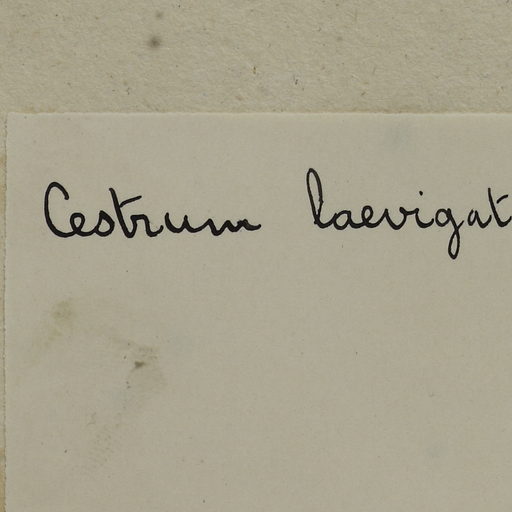 Cestrum laevigat